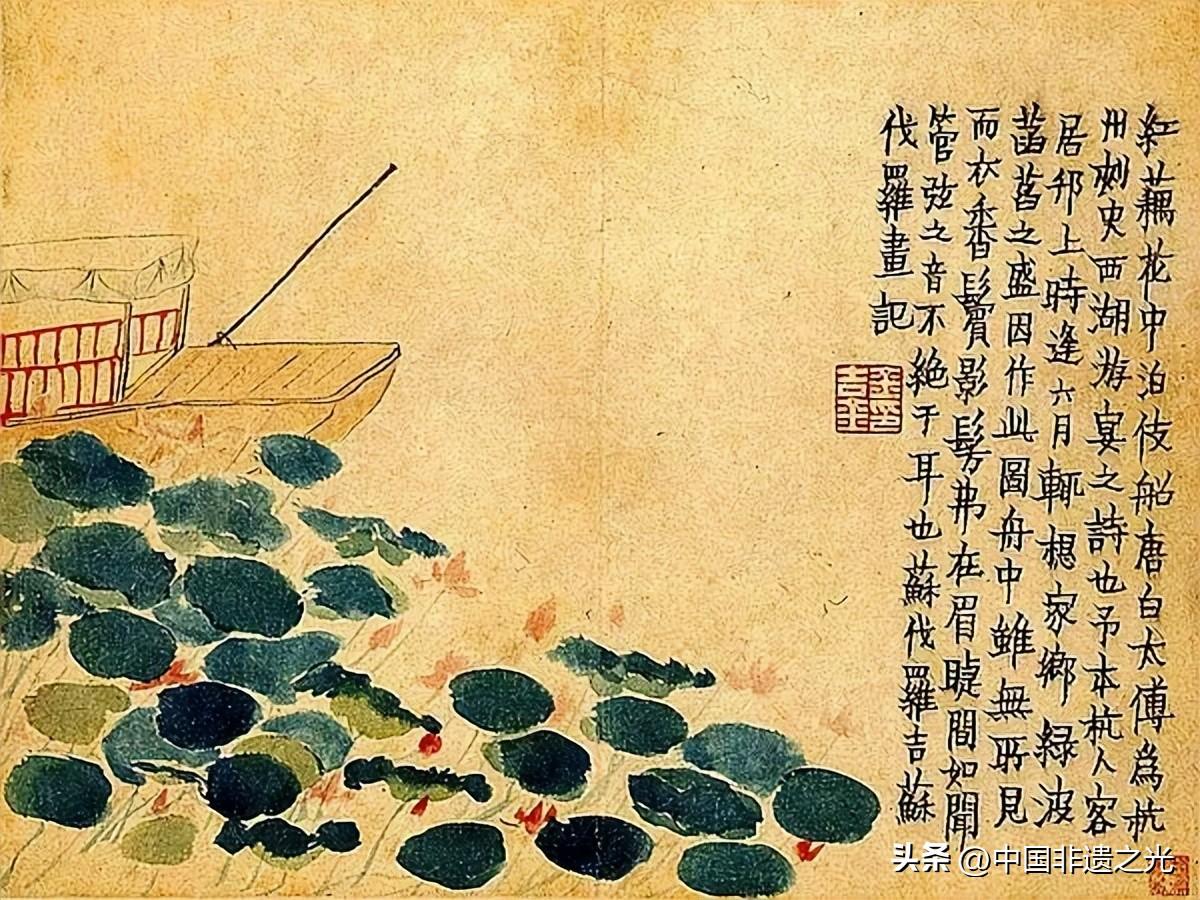 紅藕花中泊伎船唐白太傅爲杭
州刾史西湖游宴之詩也予本杭人客
居邗上時逢六月輒想家鄉綠波
菡萏之盛因作此圖舟中雖無所見
而衣香鬢影髣弗在眉睫間如聞
管弦之音不絕于耳也蘇伐羅吉蘇
伐羅畫記
金吉金印
头条 @中国非遗之光